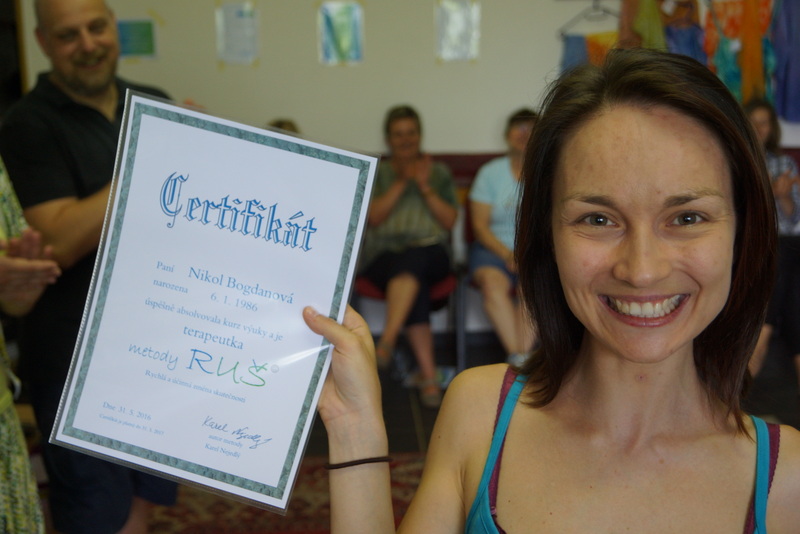 Certifikát
Paní Nikol Bogdanová
narozena 6. 1. 1986
úspěšně absolvovala kurz výuky a je
terapeutka
metody RUŠ
Rychlá a účinná
Dne 31. 5. 2016
Karel
autor metody
Karel Nejedlý